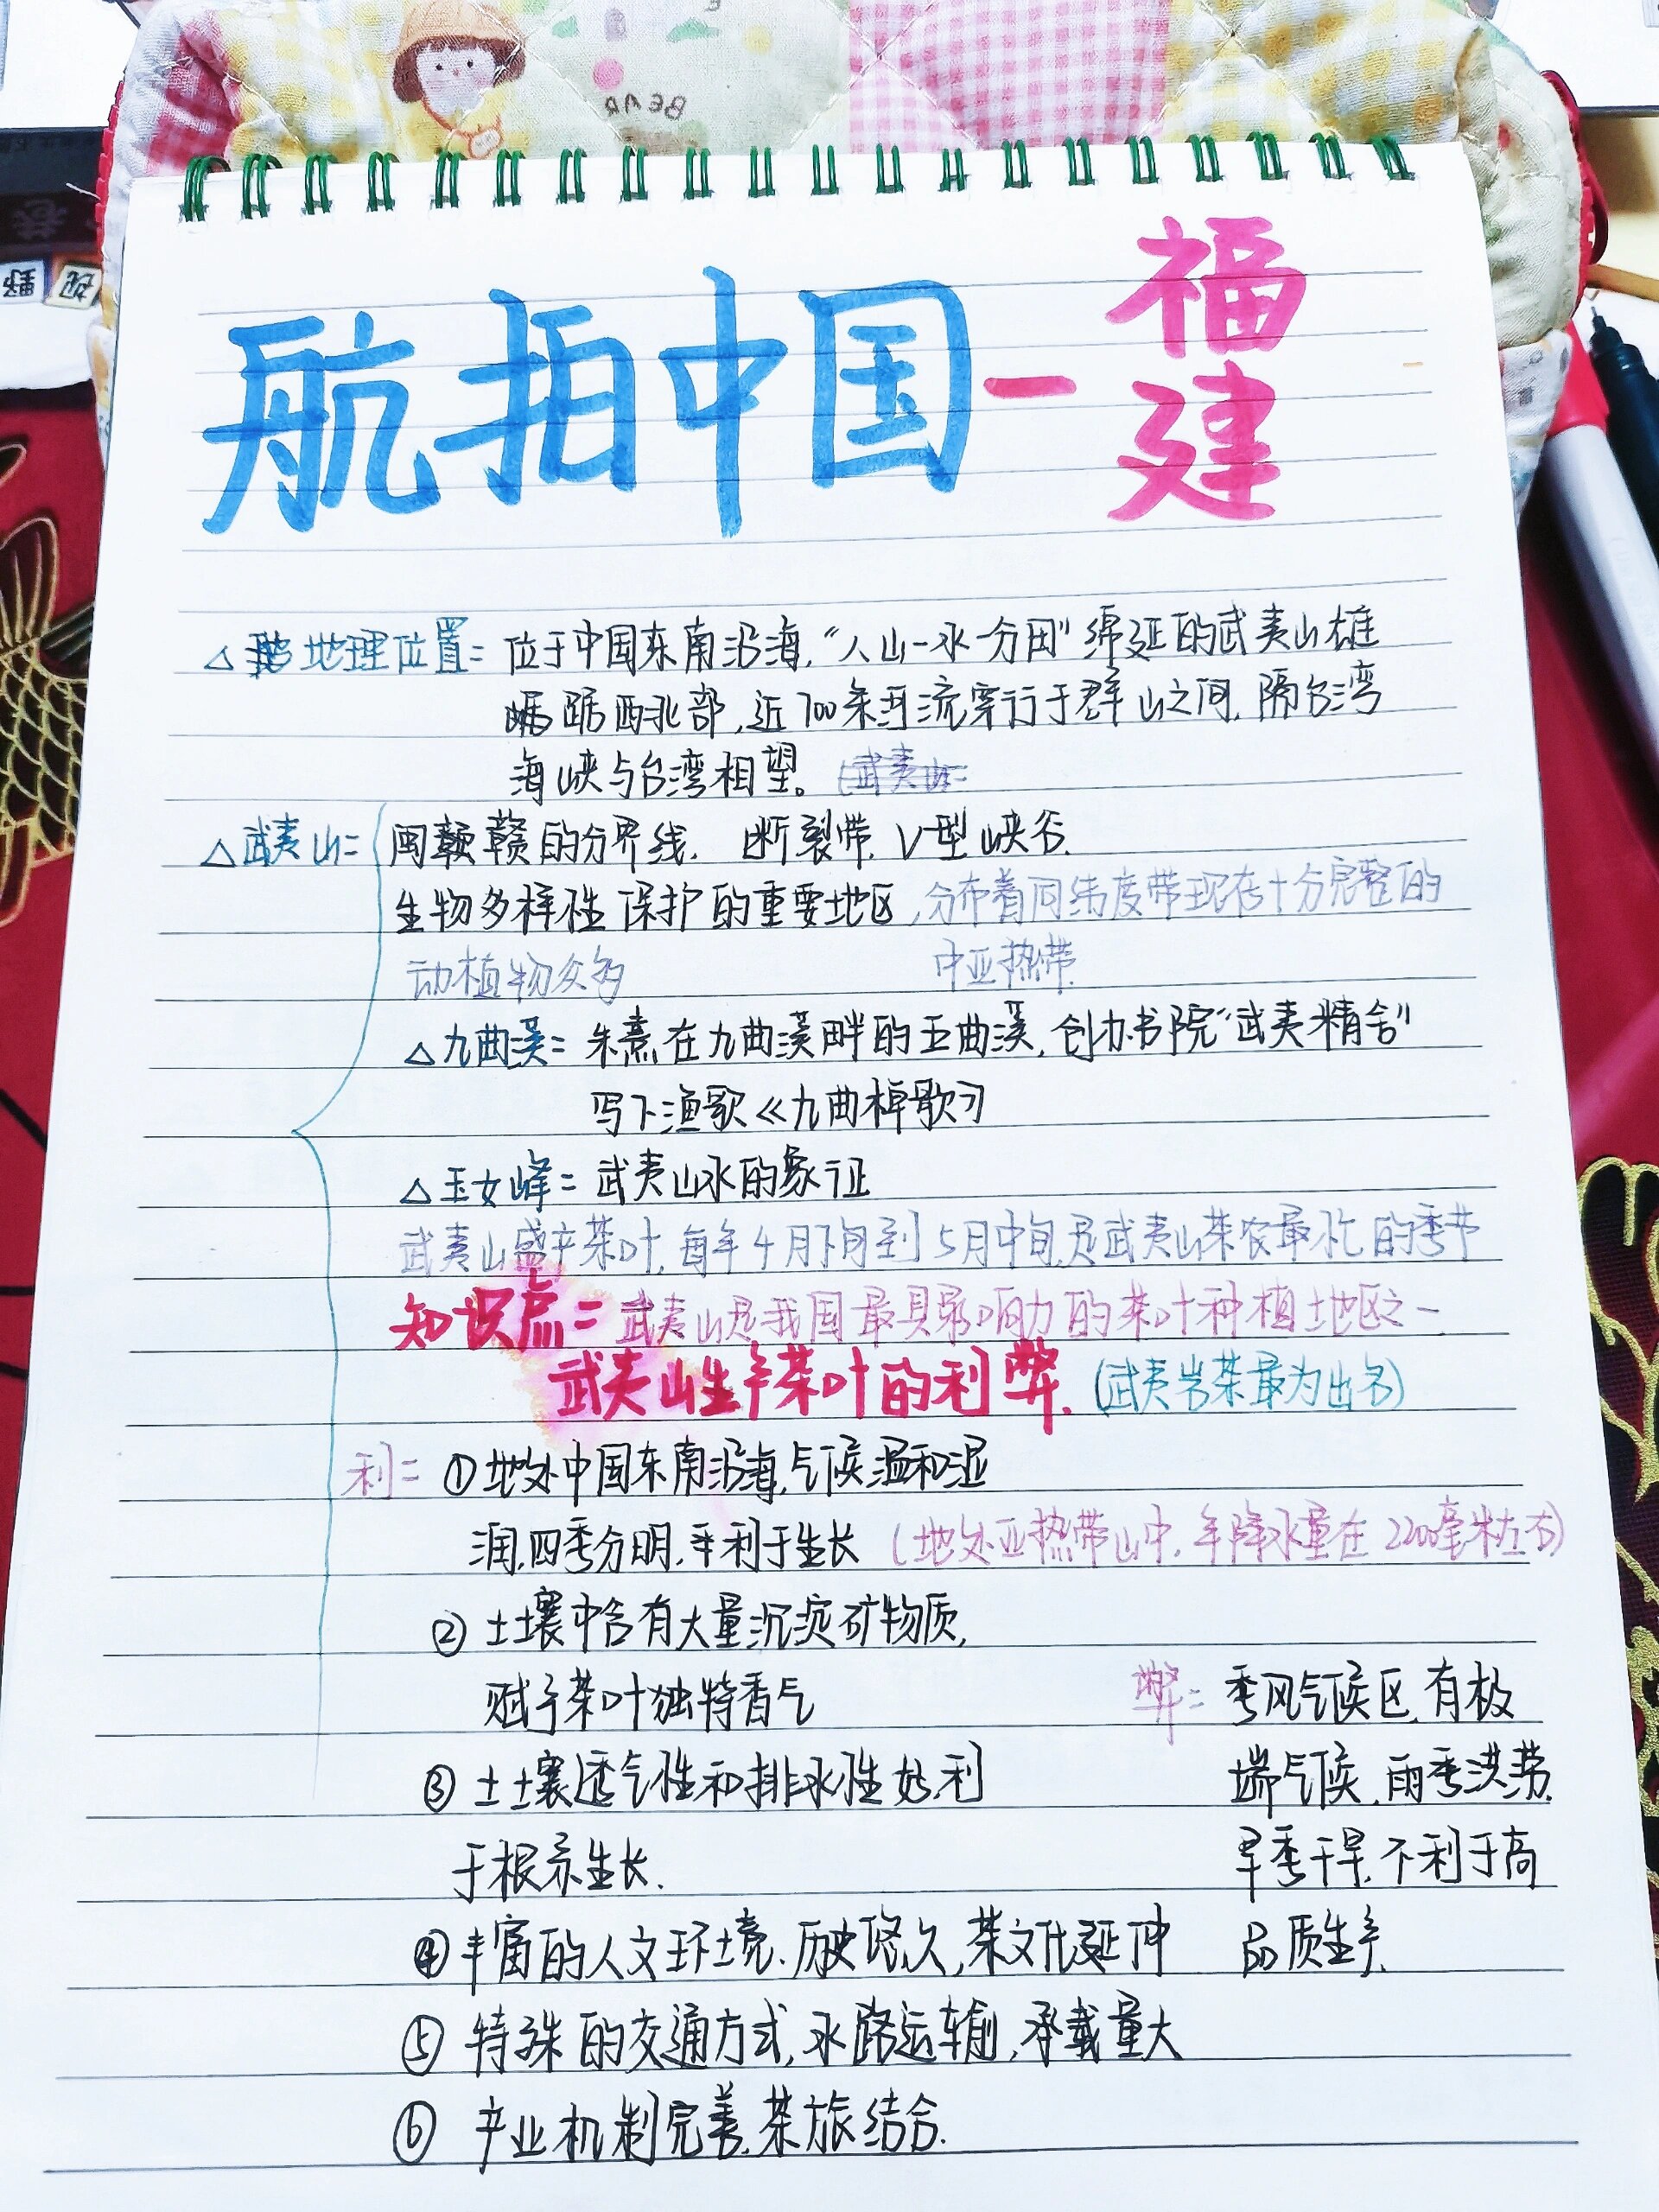 BEAR
野 视
航拍中国-福建
△ 地理位置: 位于中国东南沿海,"八山一水一分田"绵延的武夷山雄
踞西北部,近700条河流穿行于群山之间,隔台湾
海峡与台湾相望。(武夷山:
△武夷山: 闽赣的分界线. 断裂带. V型峡谷.
生物多样性保护的重要地区,分布着同纬度带现存十分完整的
动植物众多 中亚热带.
△九曲溪: 朱熹在九曲溪畔的五曲溪,创办书院"武夷精舍"
写下渔歌《九曲棹歌》
△玉女峰: 武夷山水的象征
武夷山盛产茶叶,每年4月下旬到5月中旬,是武夷山茶农最忙的季节
知识点: 武夷山是我国最具影响力的茶叶种植地区之一
武夷山生产茶叶的利弊. (武夷岩茶最为出名)
利: ①地处中国东南沿海,气候温和湿
润.四季分明,利于生长 (地处亚热带山中,年降水量在2200毫米左右)
② 土壤中含有大量沉淀矿物质,
赋予茶叶独特香气
弊: 季风气候区,有极
③ 土壤透气性和排水性好,利
端气候,雨季洪涝,
于根系生长.
旱季干旱,不利于高
④丰富的人文环境.历史悠久,茶文化延伸
品质生产.
⑤ 特殊的交通方式,水路运输,承载量大
⑥ 产业机制完善,茶旅结合.